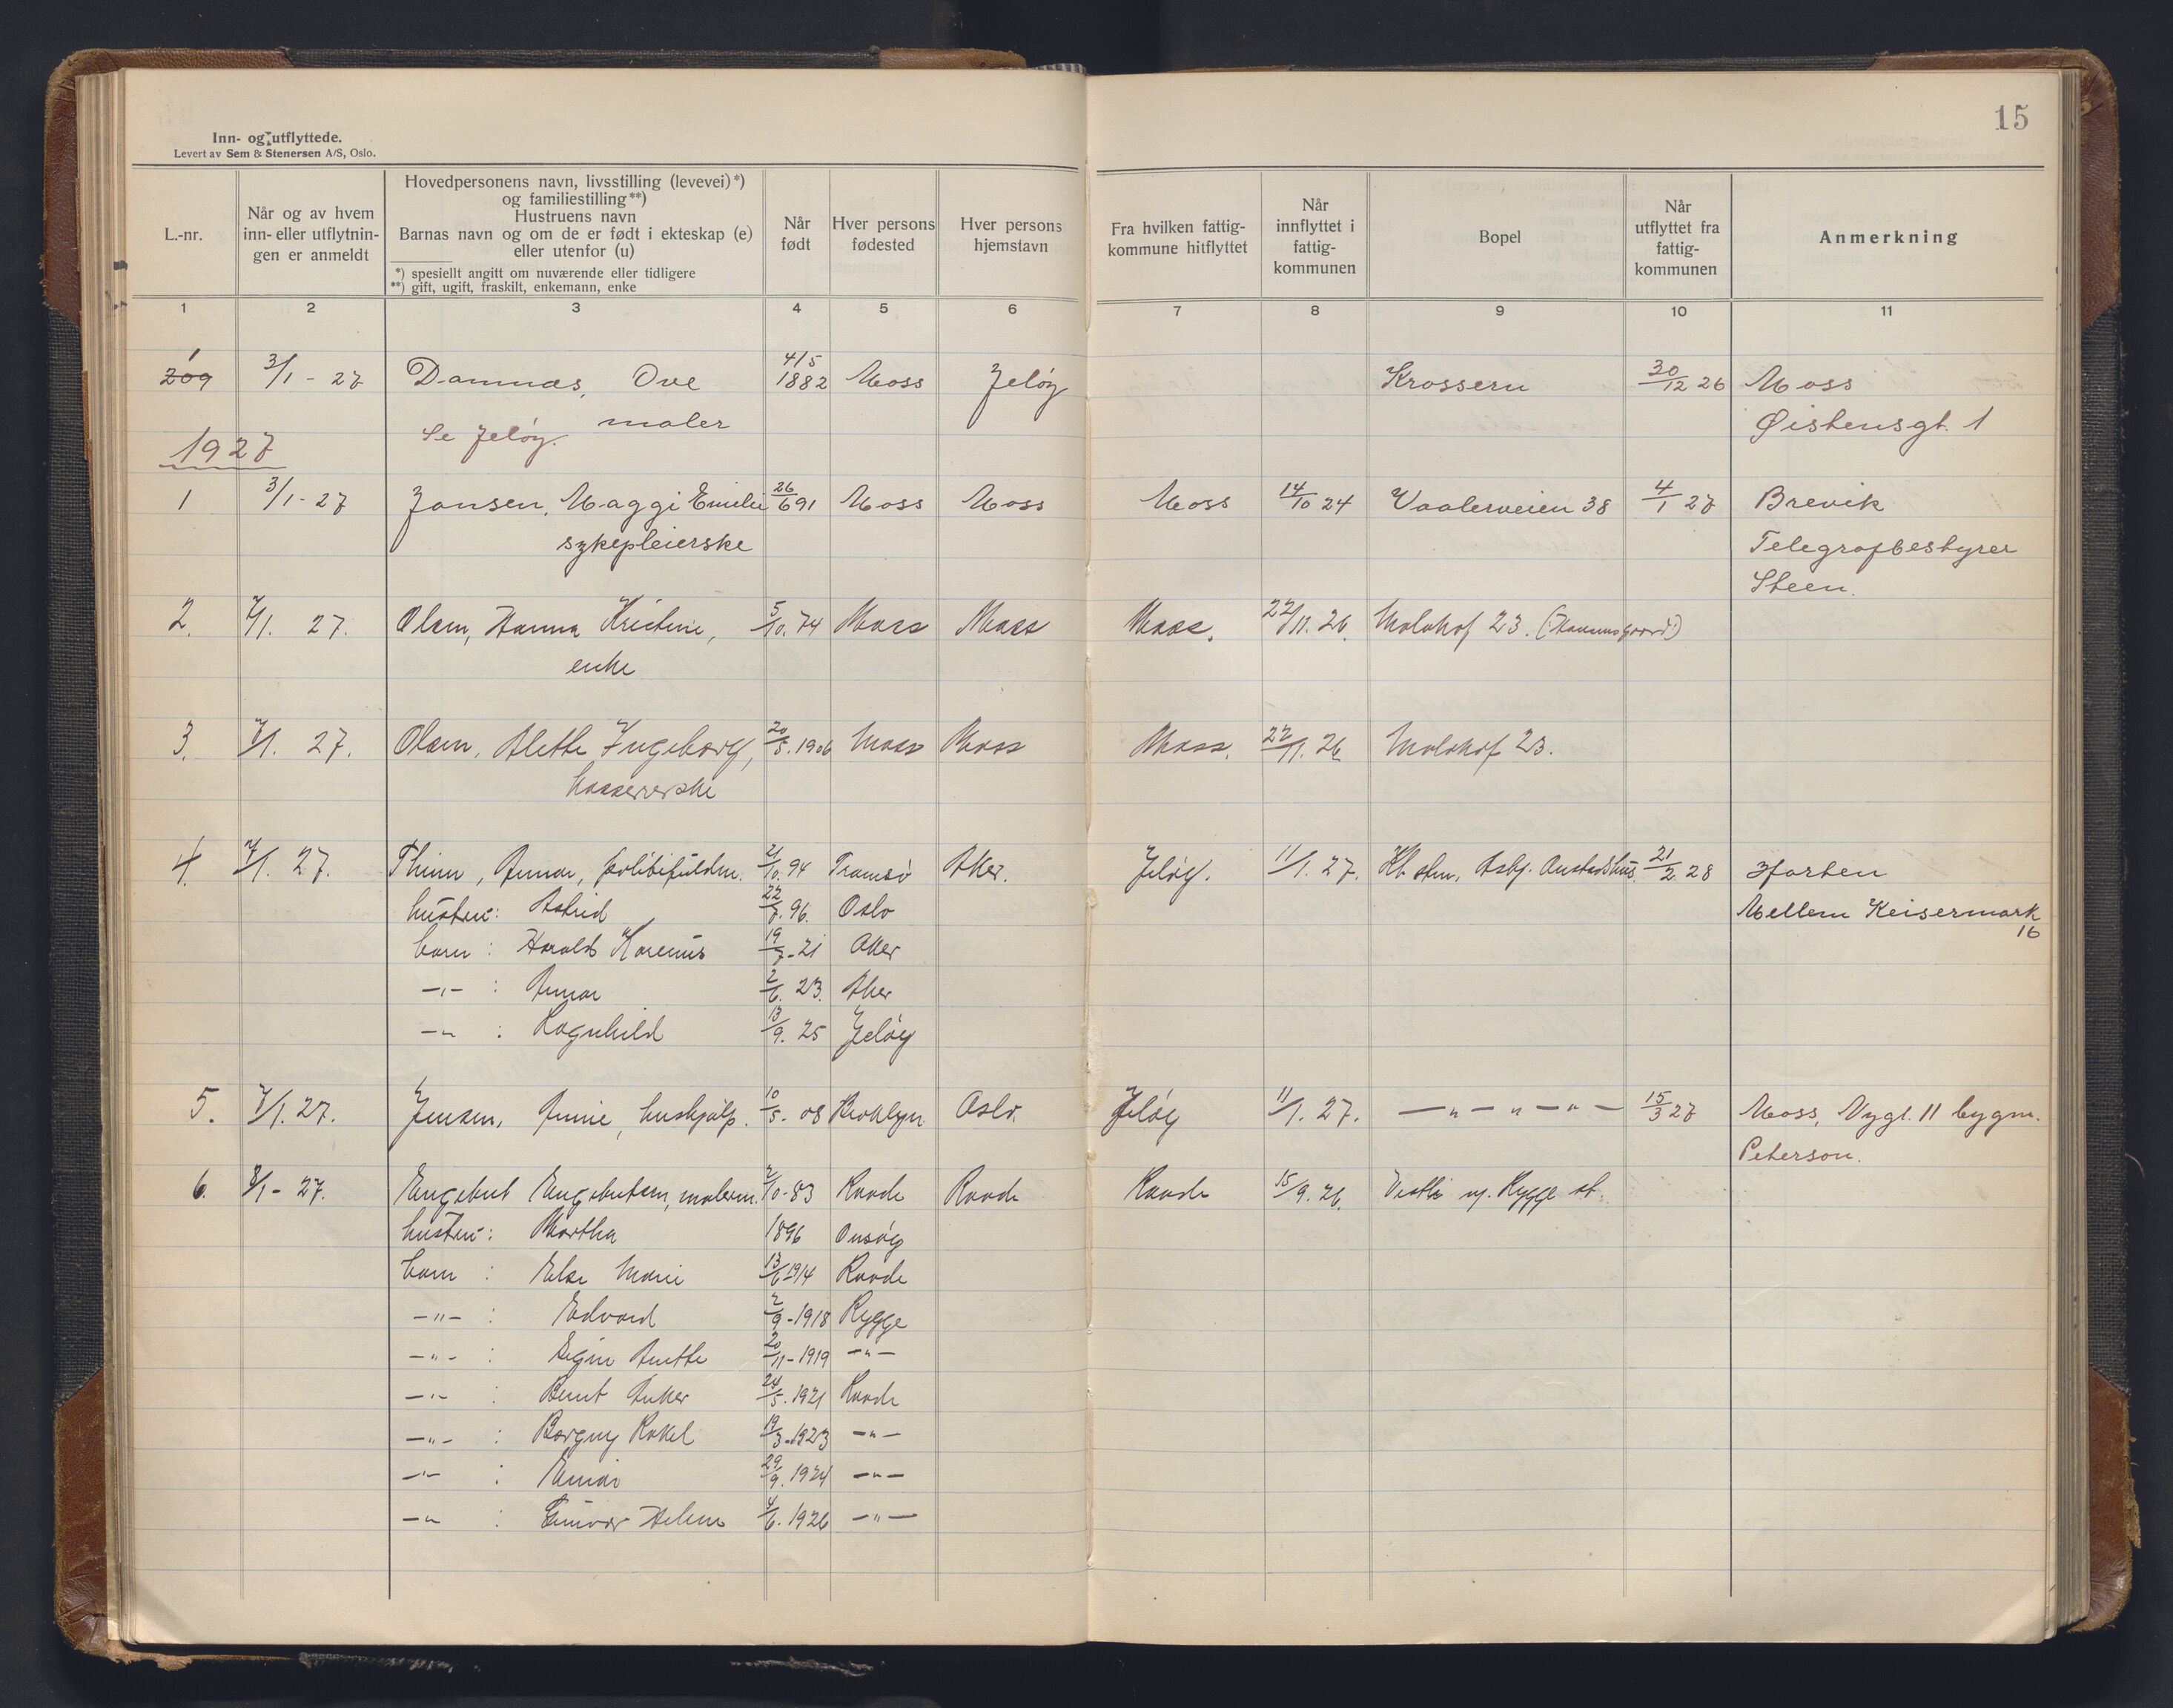 15
Inn- og utflyttede.
Levert av Sem & Stenersen A/S, Oslo.
L.-nr.
Når og av hvem
inn- eller utflytnin-
gen er anmeldt
Hovedpersonens navn, livsstilling (levevei)*)
og familiestilling**)
Hustruens navn
Barnas navn og om de er født i ekteskap (e)
eller utenfor (u)
*) spesiellt angitt om nuværende eller tidligere
**) gift, ugift, fraskilt, enkemann, enke
Når
født
Hver persons
fødested
Hver persons
hjemstavn
Fra hvilken fattig-
kommune hitflyttet
Når
innflyttet i
fattig-
kommunen
Bopel
Når
utflyttet fra
fattig-
kommunen
Anmerkning
1 2 3 4 5 6 7 8 9 10 11
1 4/5
209 3/1 - 27 Damnæs, Ove 1882 Moss Jeløy Krossern 30/12 26 Moss
Se Jeløy. maler Øistensgt. 1
1927
1 3/1 - 27 Jansen, Maggi Emilie 26/6 91 Moss Moss Moss 14/10 24 Vaalerveien 38 4/1 27 Brevik
sykepleierske Telegrafbestyrer
Steen.
2. 7/1. 27. Olsen, Hanna Kristine, 5/10. 74 Moss Moss Moss. 22/11. 26. Molohof 23.
enke
3. 7/1. 27. Olsen, Alette Ingeborg, 20/5. 1906 Moss Moss Moss. 22/11. 26 Molohof 23.
kassererske
4. 7/1. 27. Thinn, Arnar, politifuldm. 21/10. 94 Tromsø Aker. Jeløy. 11/1. 27. 21/2 28 Horten
hustru: Astrid 22/7. 96. Oslo Mellem Keisermark
16
barn : Harald 19/7 - 21 Aker
-"- : Arnar 2/6. 23. Aker
-"- : Ragnhild 13/9. 25 Jeløy
5. 7/1. 27. Jensen, Annie, hushjælp. 10/5. 08 Broklyn Oslo. Jeløy 11/1. 27. -"-"-"- 15/3 27 Moss, Nygt. 11 bygm.
Peterson.
6. 8/1 - 27. Engebret Engebretsen, malerm. 2/10 - 83 Raade Raade Raade 15/9. 26. Rygge st.
hustru: Martha 1896 Onsøy
barn : Else Marie 13/6 1914 Raade
-"- : Edvard 2/9 - 1918 Rygge
-"- : Anette 20/11 - 1919 -"-
-"- : Bernt Anker 24/5. 1921 Raade
-"- : Borgny Rakel 19/3 - 1923 -"-
-"- : Einar 29/9. 1924 -"-
-"- : Gunvor Helene 4/6. 1926 -"-